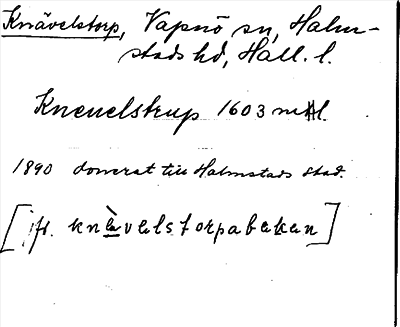 Knävelstorp, Vapnö sn, Halm-
stads hd, Hall. l.
Kneuelstrup 1603 mtl.
1890 donerat till Halmstads stad.
[jfr. knävelstorpabakan]